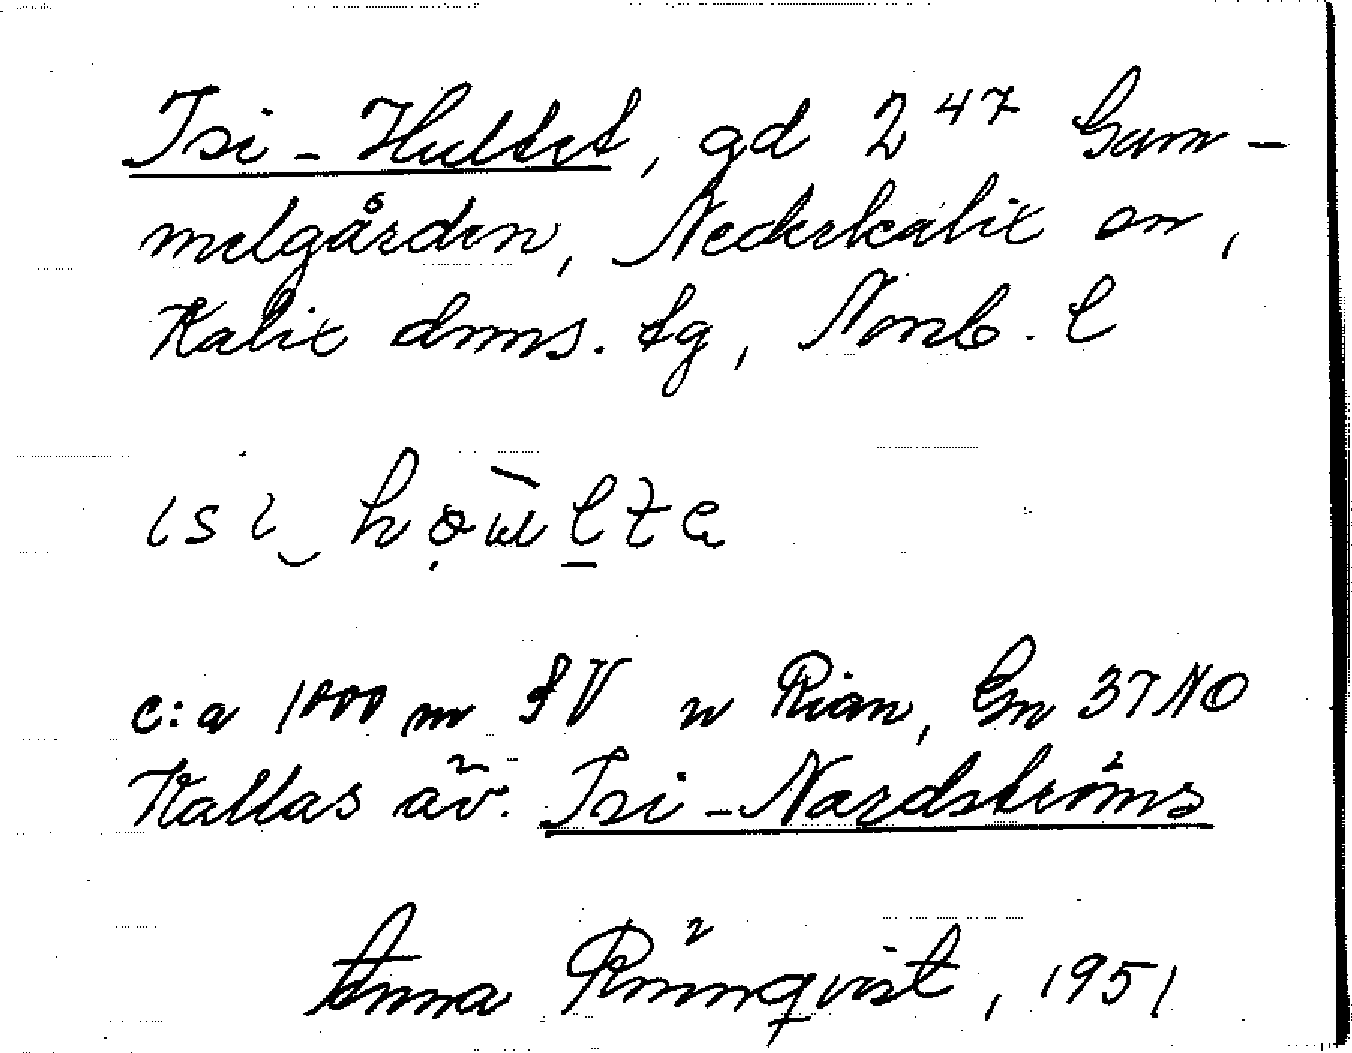 Isi-Hultet, gd 2⁴⁷ Gam-
melgården, Nederkalix sn,
Kalix dmns. tg, Norrb. l
c:a 1000 m SV n Rian, Gm 37 NO
Kallas äv. Isi-Nordströms
Anna Rönnqvist, 1951